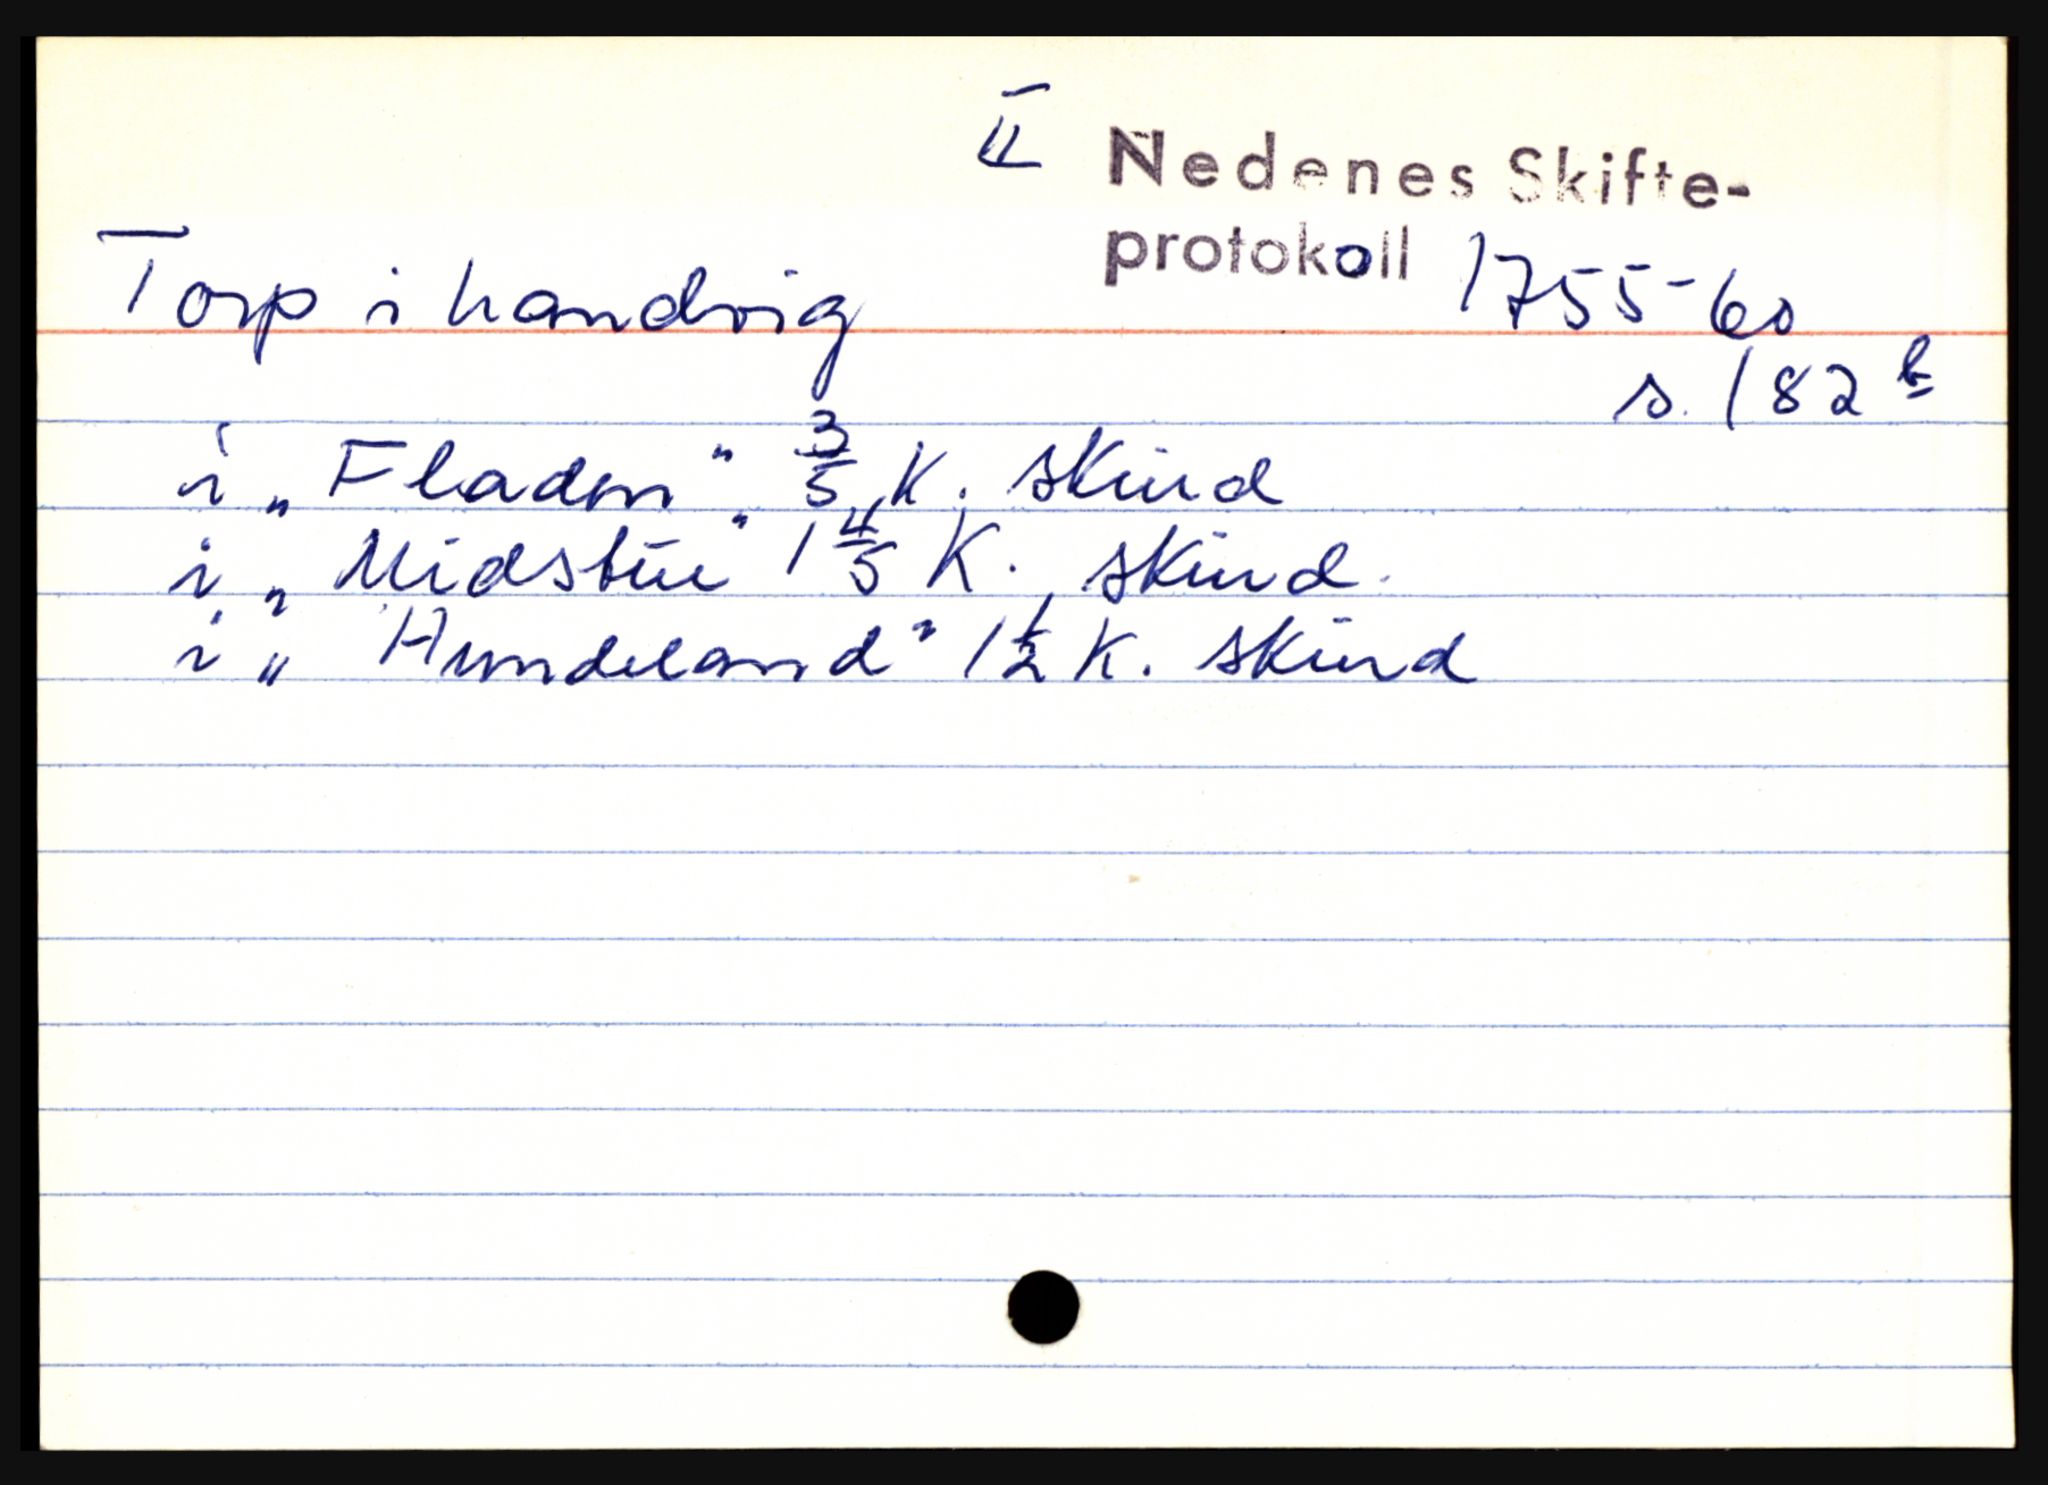 II Nedenes Skifte-
protokoll 1755-60
Torp i Landvig
s. 182 b
i „Fladen" 3/5 K. skind
i „Midstue" 1 4/5 K. skind.
i „Hundeland" 1 1/2 K. skind